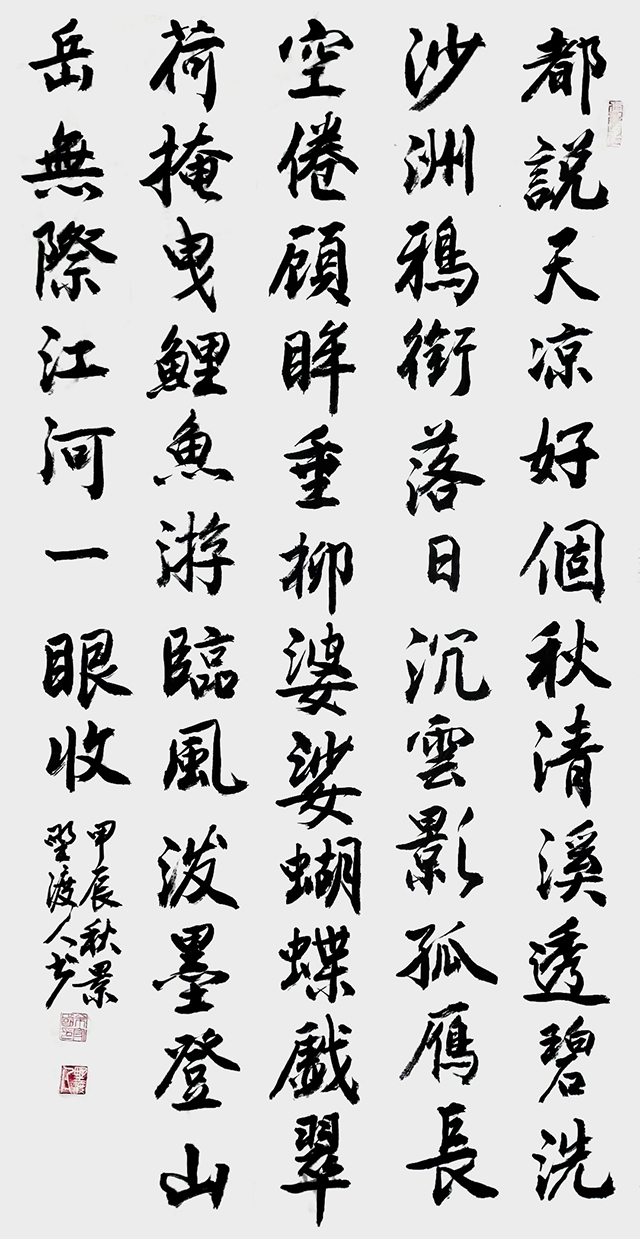 都說天凉好個秋清溪透碧洗
沙洲鴉銜落日沉雲影孤雁長
空倦顧眸垂柳婆娑蝴蝶戲翠
荷掩曳鯉魚游臨風泼墨登山
岳無際江河一眼收
甲辰秋景
野渡人书